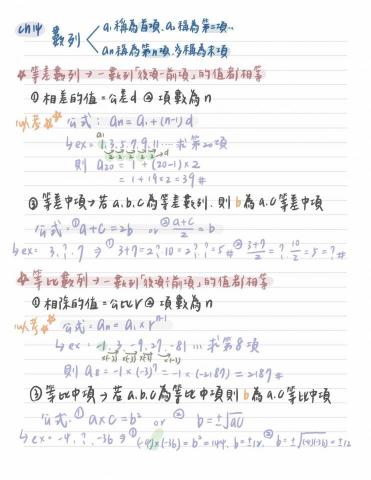 ch14 數列 a₁稱為首項, a₂稱為第二項...
an稱為第n項, 多稱為末項
等差數列→一數列「後項-前項」的值都相等
①相差的值=公差d ②項數為n
必考 公式: an=a₁+(n-1)d
↳ex= 1.3.5.7.9.11... 求第20項
a₁ 2 2 2 2 2 →d
則 a20 = 1+(20-1)×2
= 1+19×2=39#
③等差中項→若a.b.c為等差數列, 則b為a.c等差中項
公式=①a+c=2b or ②a+c/2=b
↳ex= 3.?.7 ⇒①3+7=2?.10=2?.?=5 ②3+7/2=?.10/2=5=?#
等比數列→一數列「後項÷前項」的值都相等
①相除的值=公比r ②項數為n
必考 公式=an=a₁×rⁿ⁻¹
↳ex= -1.3.-9.27.-81... 求第8項
×(-3) ×(-3) ×(-3) ×(-3)
則 a8=-1×(-3)⁷=-1×(-2187)=2187#
③等比中項→若a.b.c為等比中項則b為a.c等比中項
公式.①a×c=b² or ②b=±√ac
↳ex=-4.?.-36⇒①(-4)×(-36)=b²=144. b=±12. ②b=±√(-4)(-36)=±12